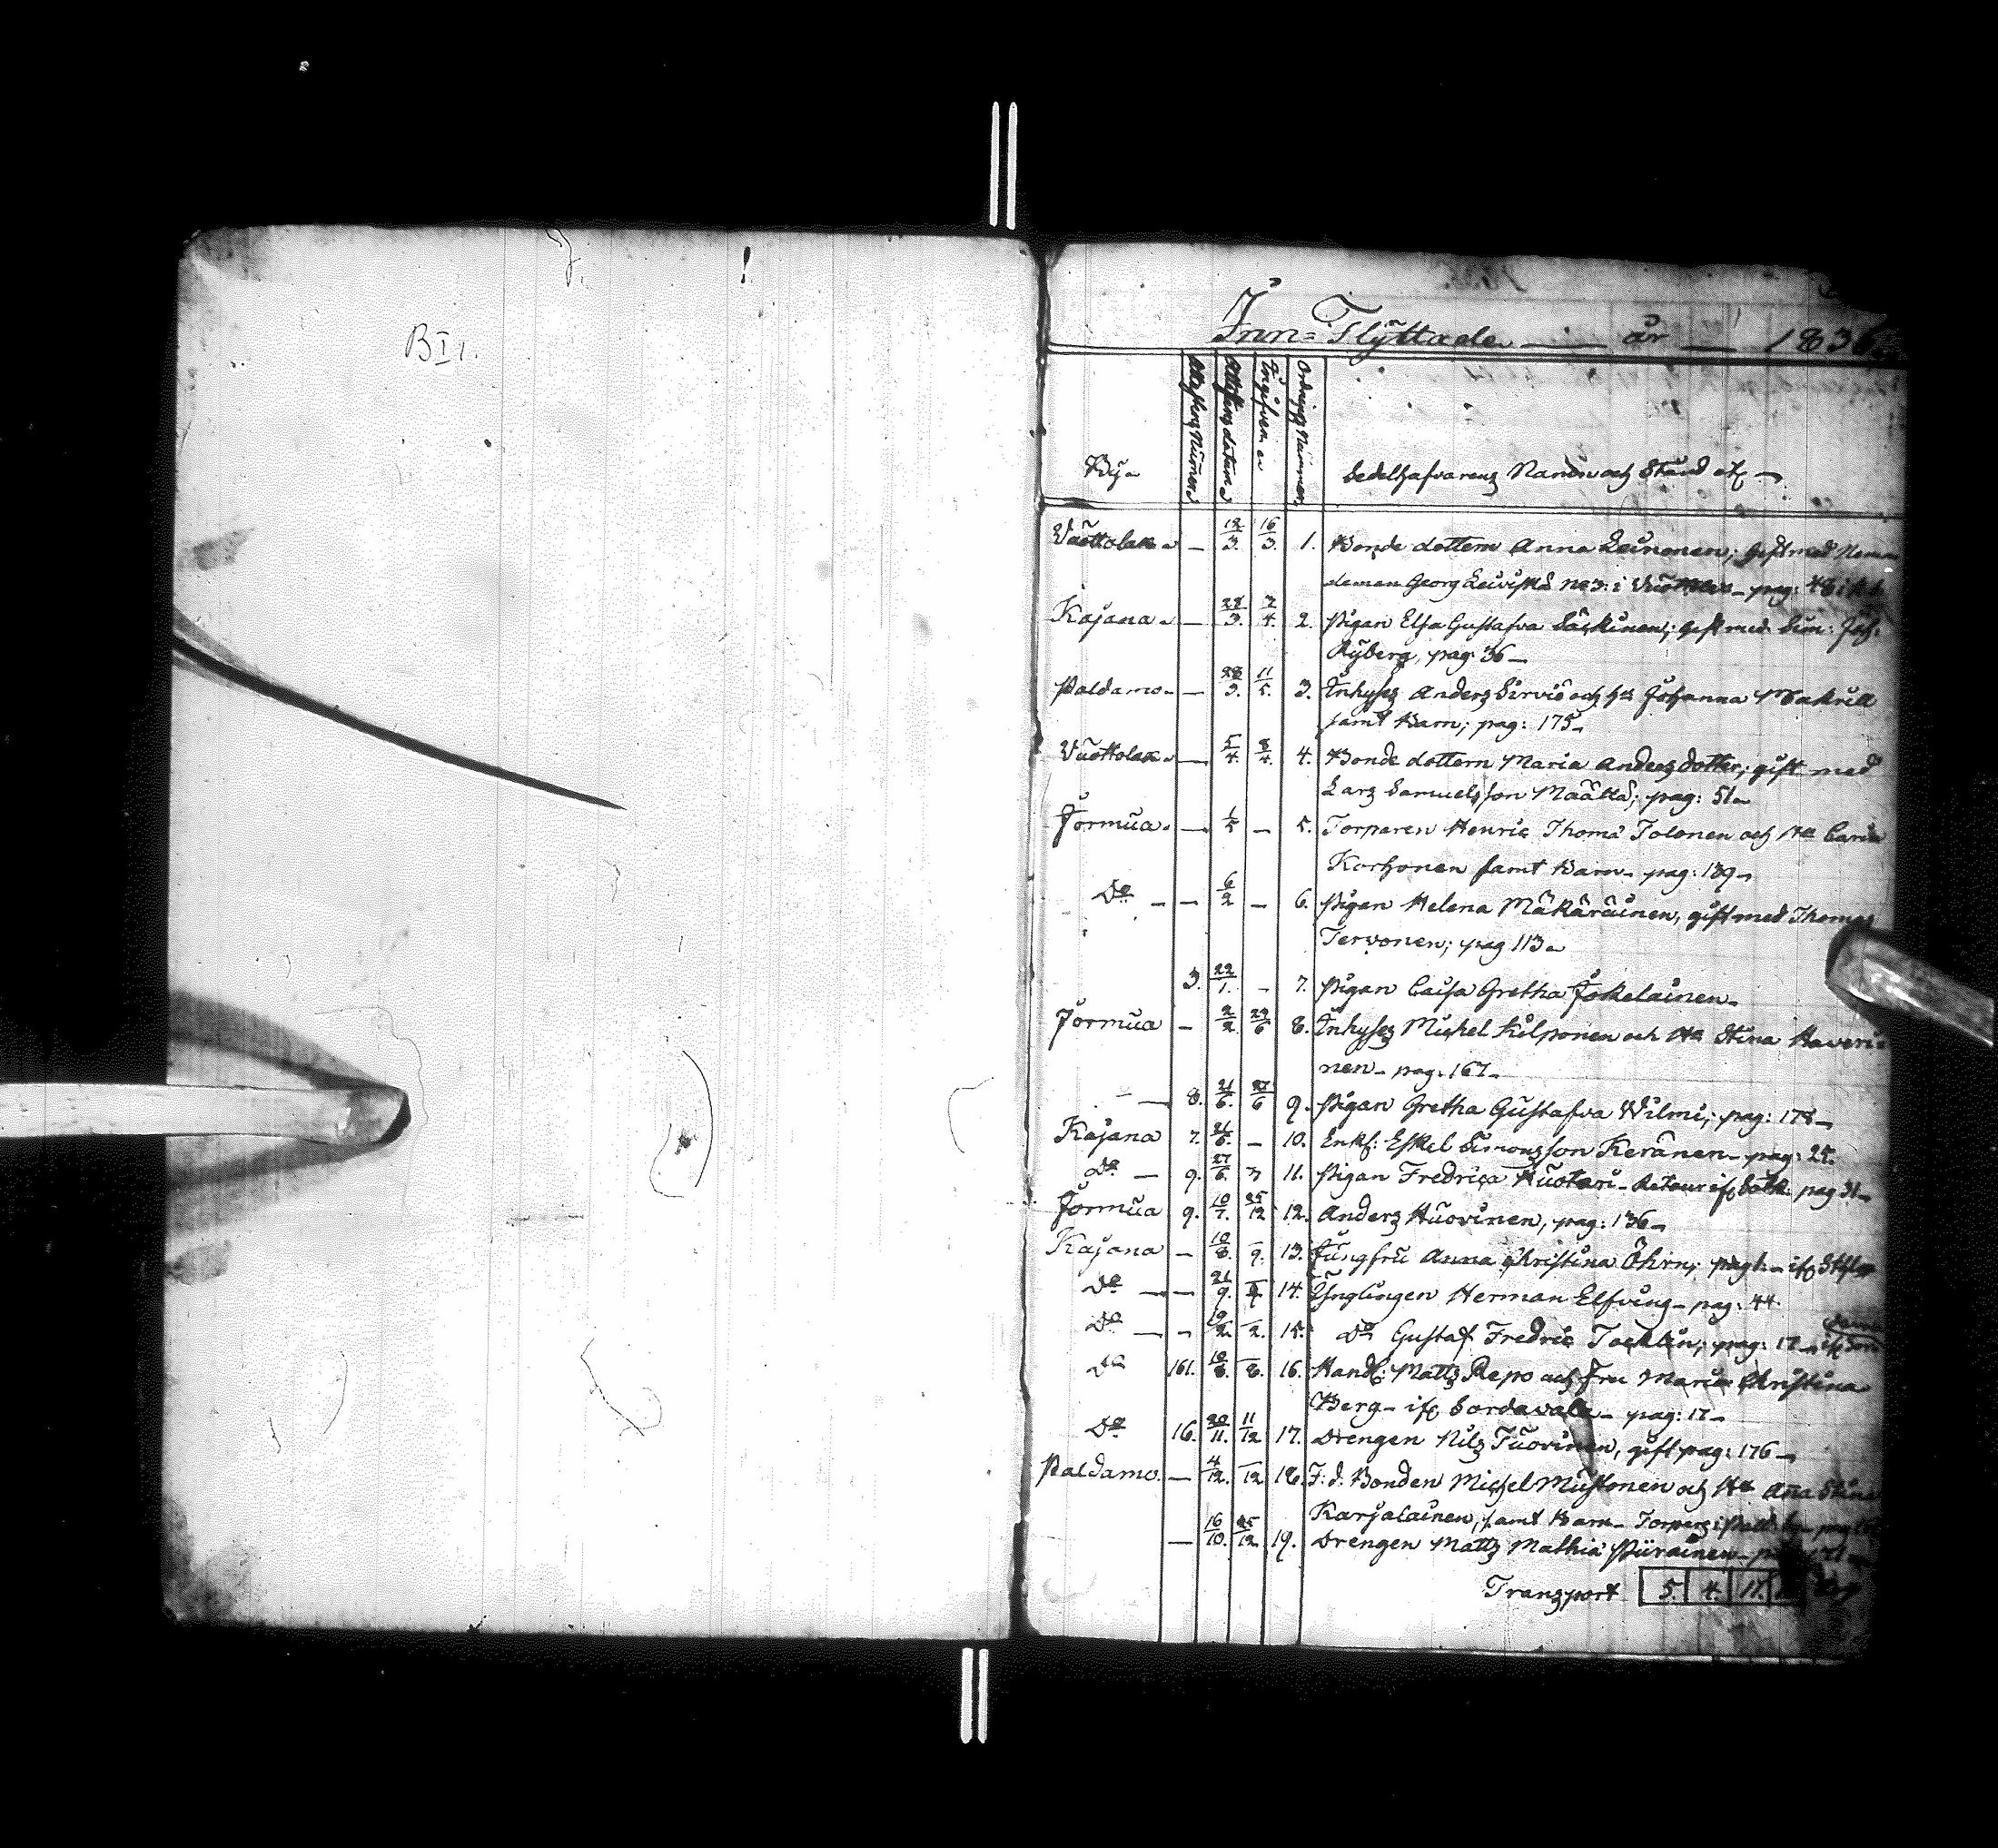 B I 1.
Inn-Flyttade — år — 1836
By
Attestens Numer
Attestens datum
Ingifven
Ordnings Nummer
Sedelhafvarens Namn och Stånd etc
Vuottolax — 12/3. 16/3. 1. Bonde dottern Anna Leinonen; gift med Nämn
deman Georg Leiviskä No 3: i Vuottolax — pag: 46
Kajana — 28/3. 2/4. 2. Pigan Elsa Gustafva Säskinen; gift med Sim: Joh:
Ryberg, pag 36 —
Paldamo — 28/3. 11/5. 3. Inhyses Anders Sirviö och H:u Johanna Makrill
samt Barn; pag: 175 —
Vuottolax — 5/4. 8/4. 4. Bonde dottern Maria Anders dotter; gift med
Lars Samuelsson Määttä; pag: 51 —
Jormua — 1/5 — 5. Torparen Henric Thoma Tolonen och H:u Carin
Korhonen samt Barn — pag: 139 —
D:o — — 6/2 — 6. Pigan Helena Mäkäräinen, gift med Thomas
Tervonen; pag 113 —
3. 22/1. — 7. Pigan Caisa Gretha Jokelainen —
Jormua — 2/2. 29/6 8. Inhyses Michel Kilponen och H:u Stina Haveri
nen — pag. 167 —
— 8. 21/6. 27/6 9. Pigan Gretha Gustafva Wilmi; pag: 178 —
Kajana 7. 21/6. — 10. Enkl: Eskel Simonsson Keränen — pag: 25.
D:o — 9. 27/6. 11. Pigan Fredrica Huotari — Retour if: Sotk: pag 31 —
Jormua 9. 10/7. 25/12 12. Anders Huovinen, pag: 136 —
Kajana — 10/8. —/9. 13. Jungfru Anna Christina Öhrn;
D:o — — 21/9. 14. Ynglingen Herman Elfving — pag: 44.
D:o — — —/2. 15. D:o Gustaf Fredric Tocklin; pag: 17
D:o 161. 10/8. —/8. 16. Handl: Matts Repo och Fru Maria Christina
Berg — if: Sordavala — pag: 17 —
D:o 16. 20/11. 11/12 17. Drengen Nils Tuovinen, gift pag: 176 —
Paldamo. — 4/12. —/12 18. F: d: Bonden Michel Mustonen och H:u Ana Stina
Karjalainen, samt Barn — Torpare i Pald:
— 16/10. 25/12 19. Drengen Matts Mathia Piirainen —
Transport 5. 4. 11.